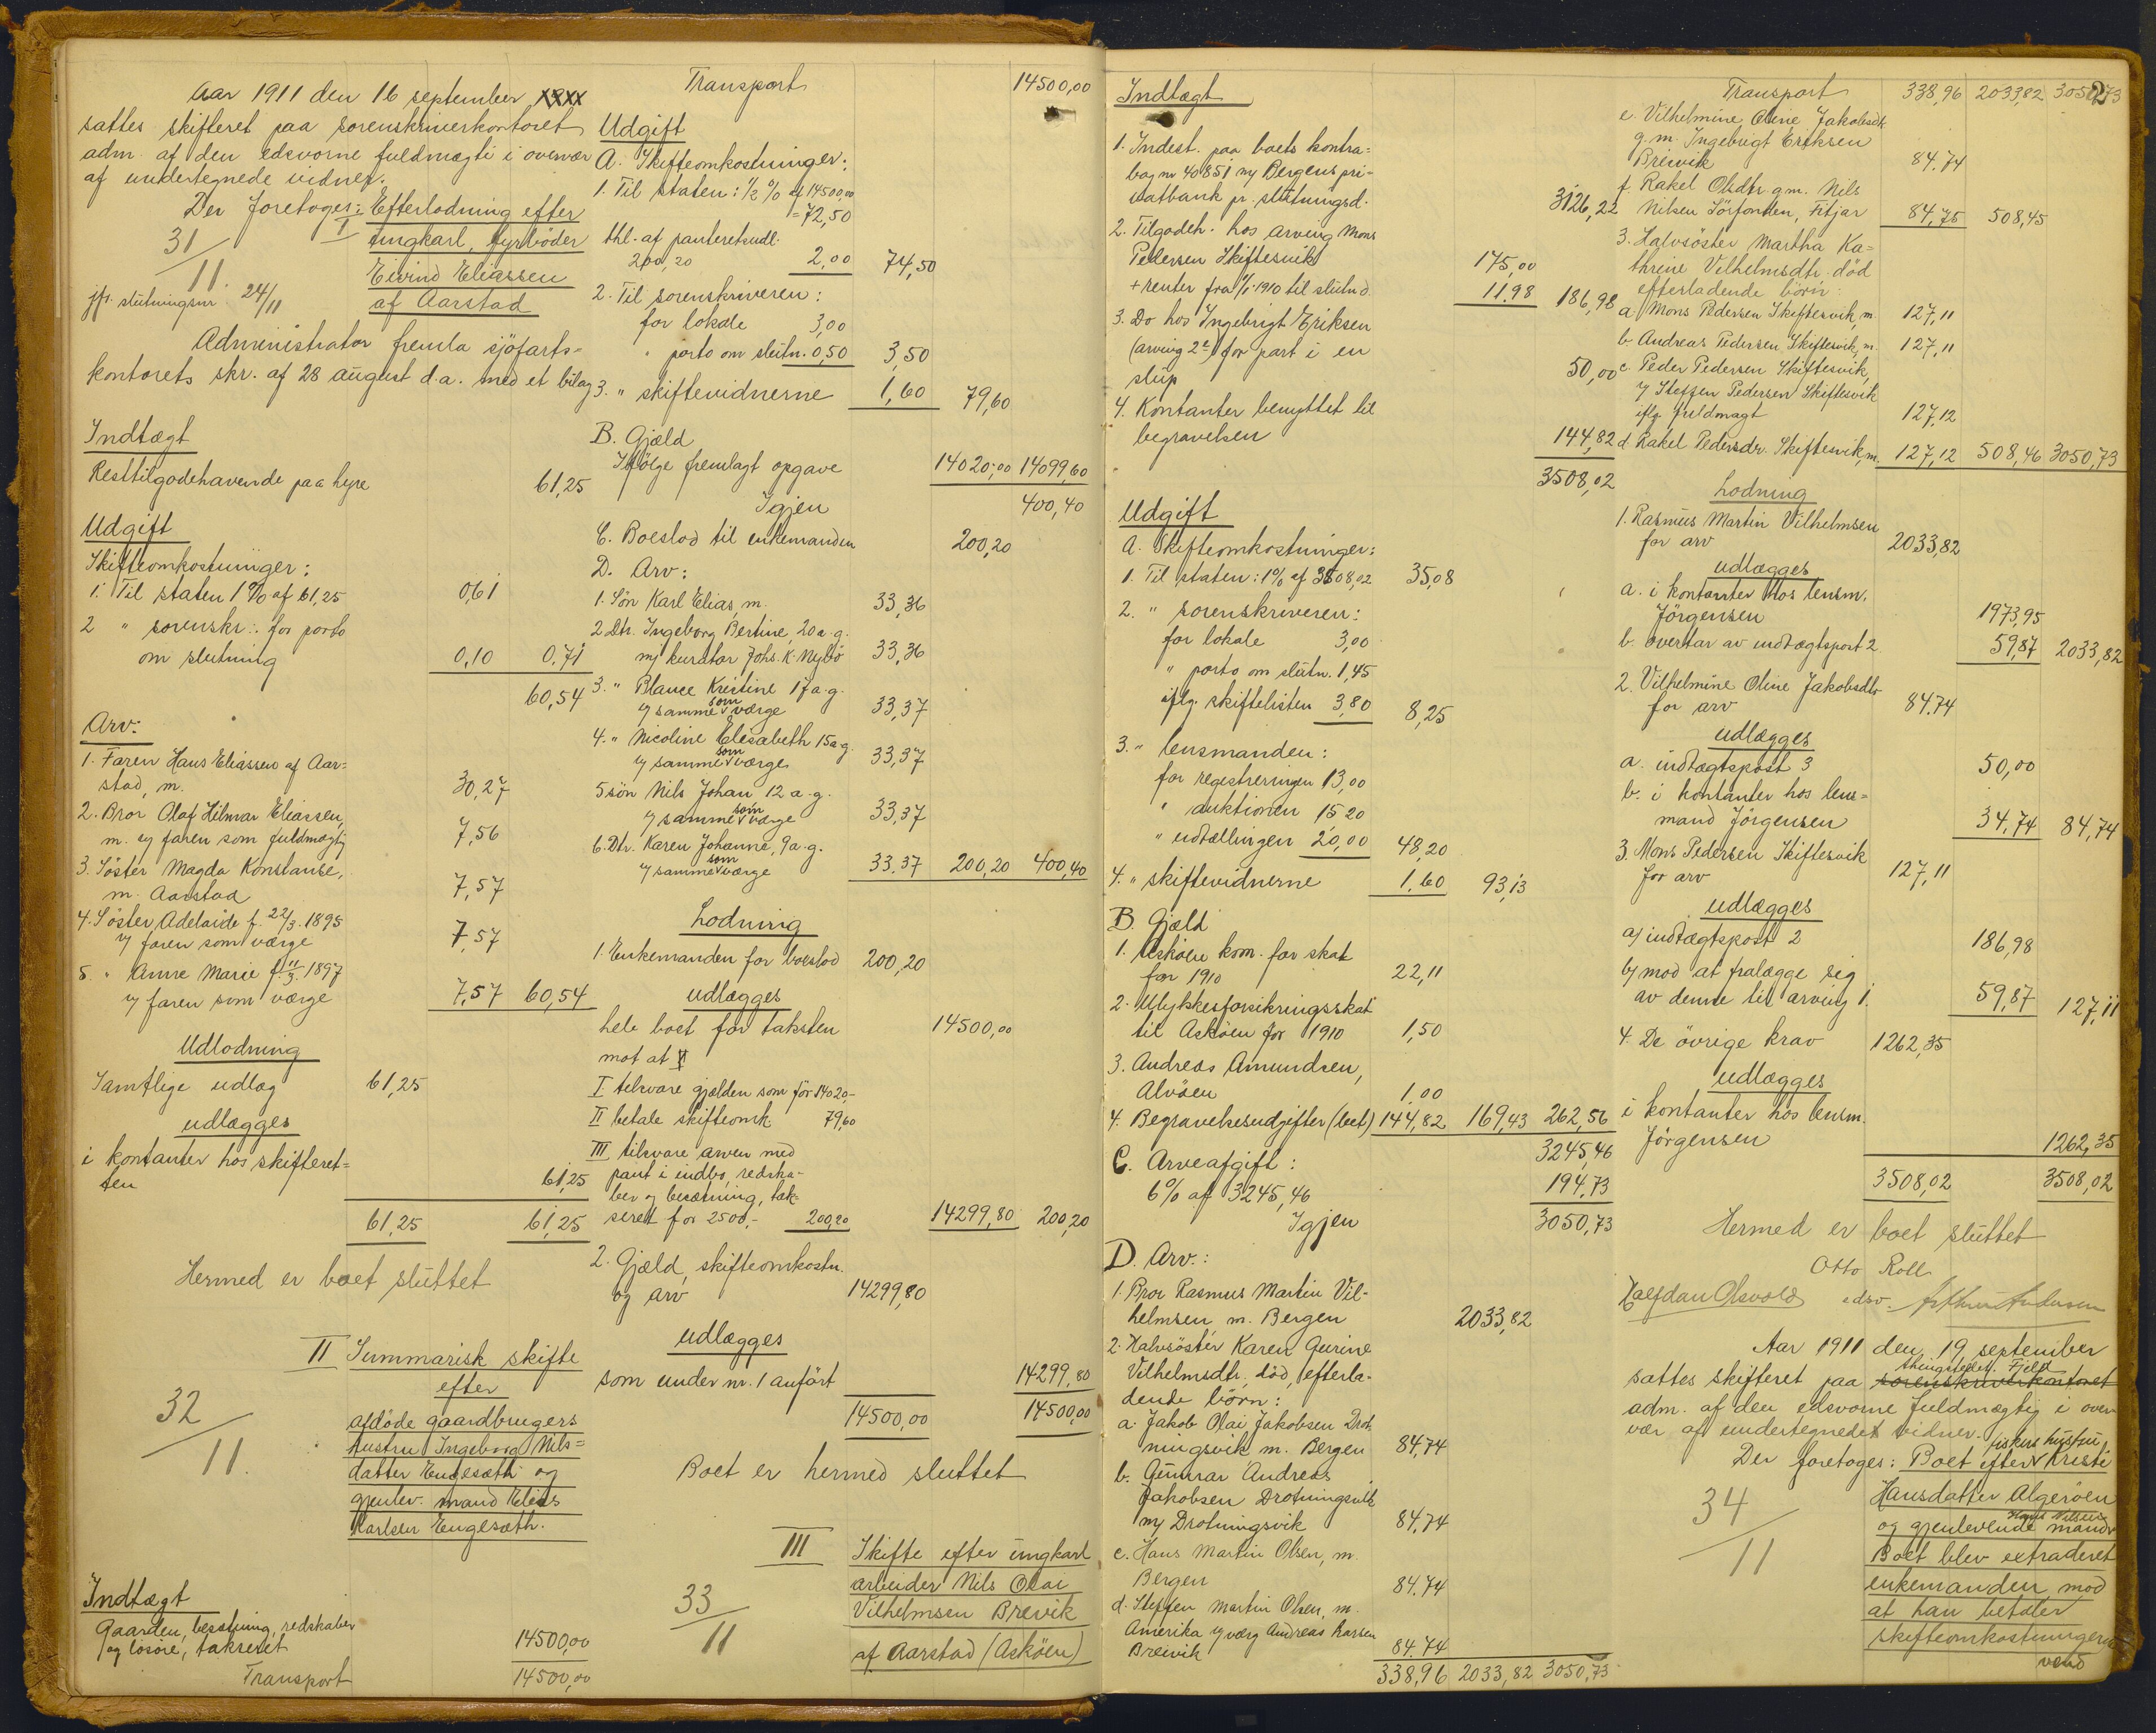 Aar 1911 den 16 september xxxx
sattes skifteret paa sorenskriverkontoret
adm. af den edsvorne fuldmægti i overvær
af undertegnede vidner.
Der foretoges: Efterlodning efter
I ungkarl, fyrböder
31/11. Eivind Eliassen
jfr. slutningsnr. 24/11 af Aarstad
Administrator fremla sjöfarts-
kontorets skr. af 28 august d.a. med et bilag
Indtægt
Resttilgodehavende paa hyre 61,25
Udgift
Skifteomkostninger:
1. Til staten 1 % af 61,25 0,61
2 " sorenskr.: for porto
om slutning 0,10 0,71
60,54
Arv:
1. Faren Hans Eliassen af Aar-
stad, m. 30,27
2. Bror Olaf Hilmar Eliassen,
m. v/ faren som fuldmægtig 7,56
3. Söster Magda Konstanse,
m. Aarstad 7,57
4. Söster Adelaide f. 22/3. 1895
v/ faren som værge 7,57
5. " Anne Marie f. 11/3. 1897
v/ faren som værge 7,57 60,54
Udlodning
Samtlige udlæg 61,25
udlægges
i kontanter hos skifteret-
ten 61,25
61,25 61,25
Hermed er boet sluttet
II Summarisk skifte
efter
32/11. afdöde gaardbrugers
hustru Ingeborg Nils-
datter Engesæth og
gjenlev. mand Elias
Karlsen Engesæth.
Indtægt
Gaarden, besætning, redskaber
og lösöre, takseret 14500,00
Transport 14500,00
Transport 14500,00
Udgift
A. Skifteomkostninger:
1. Til staten: 1/2 % af 14500,00
= 72,50
thl. af panteretsudl.
200,20 2,00 74,50
2. Til sorenskriveren:
for lokale 3,00
" porto om slutn. 0,50 3,50
3. " skiftevidnerne 1,60 79,60
B. Gjæld
Ifölge fremlagt opgave 14020,00 14099,60
Igjen 400,40
C. Boeslod til enkemanden 200,20
D. Arv:
1. Sön Karl Elias, m. 33,36
2 Dtr. Ingeborg Bertine, 20 a. g.
m/ kurator Johs. K. Nybö 33,36
3. " Blance Kristine 17 a. g.
v/ samme som værge 33,37
4. " Nicoline Elesabeth 15 a g.
v/ samme som værge 33,37
5 sön Nils Johan 12 a. g.
v/ samme som værge 33,37
6. Dtr. Karen Johanne, 9 a. g.
v/ samme som værge 33,37 200,20 400,40
Lodning
1. Enkemanden for boeslod 200,20
udlægges
hele boet for taksten 14500,00
mot at
I tilsvare gjælden som för 14020,-
II betale skifteomk 79,60
III tilsvare arven med
pant i indbo, redska-
ber og besætning, tak-
seret for 2500,- 200,20 14299,80 200,20
2. Gjæld, skifteomkostn.
og arv 14299,80
udlægges
som under nr. 1 anfört 14299,80
14500,00 14500,00
Boet er hermed sluttet
III Skifte efter ungkarl
33/11 arbeider Nils Olai
Vilhelmsen Brevik
af Aarstad (Asköen)
Indtægt
1. Indest. paa boets kontra-
bog nr 40851 m/ Bergens pri-
vatbank pr. slutningsd. 3126,22
2. Tilgodeh. hos arving Mons
Pedersen Skiftesvik 175,00
+ renter fra 1/1. 1910 til slutn d. 11,98 186,98
3. Do hos Ingebrigt Eriksen
(arving 2e) for part i en
slup 50,00
4. Kontanter benyttet til
begravelsen 144,82
3508,02
Udgift
A. Skifteomkostninger:
1. Til staten: 1% af 3508,02 35,08
2. " sorenskriveren:
for lokale 3,00
" porto om slutn. 1,45
iflg. skiftelisten 3,80 8,25
3. " lensmanden:
for registreringen 13,00
" auktionen 15 20
" udtællingen 20,00 48,20
4. " skiftevidnerne 1,60 93,13
B. Gjæld
1. Asköen kom. for skat
for 1910 22,11
2. Ulykkesforsikringsskat
til Asköen for 1910 1,50
3. Andreas Amundsen,
Alvöen 1,00
4. Begravelsesudgifter (bet) 144,82 169,43 262,56
3245,46
C. Arveafgift:
6% af 3245,46 194,73
Igjen 3050,73
D. Arv.:
1. Bror Rasmus Martin Vil-
helmsen m. Bergen 2033,82
2. Halvsöster Karen Gurine
Vilhelmsdtr. död, efterla-
dende börn:
a. Jakob Olai Jakobsen Drot-
ningsvik m. Bergen 84,74
b. Gunnar Andreas
Jakobsen Drotningsvik
m/ Drotningsvik 84,74
c. Hans Martin Olsen, m.
Bergen 84,74
d. Steffen Martin Olsen, m.
Amerika v/ værg Andreas Larsen
Breivik 84,74
338,96 2033,82 3050,73
2
Transport 338,96 2033,82 3050,73
e. Vilhelmine Oline Jakobsdtr
g. m. Ingebrigt Eriksen
Breivik 84,74
f. Rakel Olsdtr g.m. Nils
Nilsen Sörfonden, Fitjar 84,75 508,45
3. Halvsöster Martha Ka-
thrine Vilhelmsdtr. död
efterladende börn:
a. Mons Pedersen Skiftesvik, m 127,11
b. Andreas Pedersen Skiftesvik, m. 127,11
c. Peder Pedersen Skiftesvik,
v/ Steffen Pedersen Skiftesvik
iflg. fuldmagt 127,12
d. Rakel Pedersdr. Skiftesvik, m. 127,12 508,46 3050,73
Lodning
1. Rasmus Martin Vilhelmsen
for arv 2033,82
udlægges
a. i kontanter hos lensm.
Jörgensen 1973,95
b. overtar av indtægtspost 2 59,87 2033,82
2. Vilhelmine Oline Jakobsdtr
for arv 84,74
udlægges
a. indtægtspost 3 50,00
b. i kontanter hos lens-
mand Jörgensen 34,74 84,74
3. Mons Pedersen Skiftesvik
for arv 127,11
udlægges
a/ indtægtspost 2 186,98
b/ mod at fralægge sig
av denne til arving 1. 59,87 127,11
4. De övrige krav 1262,35
udlægges
i kontanter hos lensm.
Jörgensen 1262,35
3508,02 3508,02
Hermed er boet sluttet
Otto Roll
Halfdan Olsvold edsv. Arthur Andersen
Aar 1911 den 19 september
thingstedet Fjeld
sattes skifteret paa sorenskriverkontoret
adm. af den edsvorne fuldmægtig i over
vær af undertegnedet vidner.
fiskers hustru
Der foretoges: Boet efter Kristi
34/11 Hansdatter Algeröen
Hans Nilsen
og gjenlevende mand
Boet blev extraderet
enkemanden mod
at han betaler
skifteomkostningerne
vend